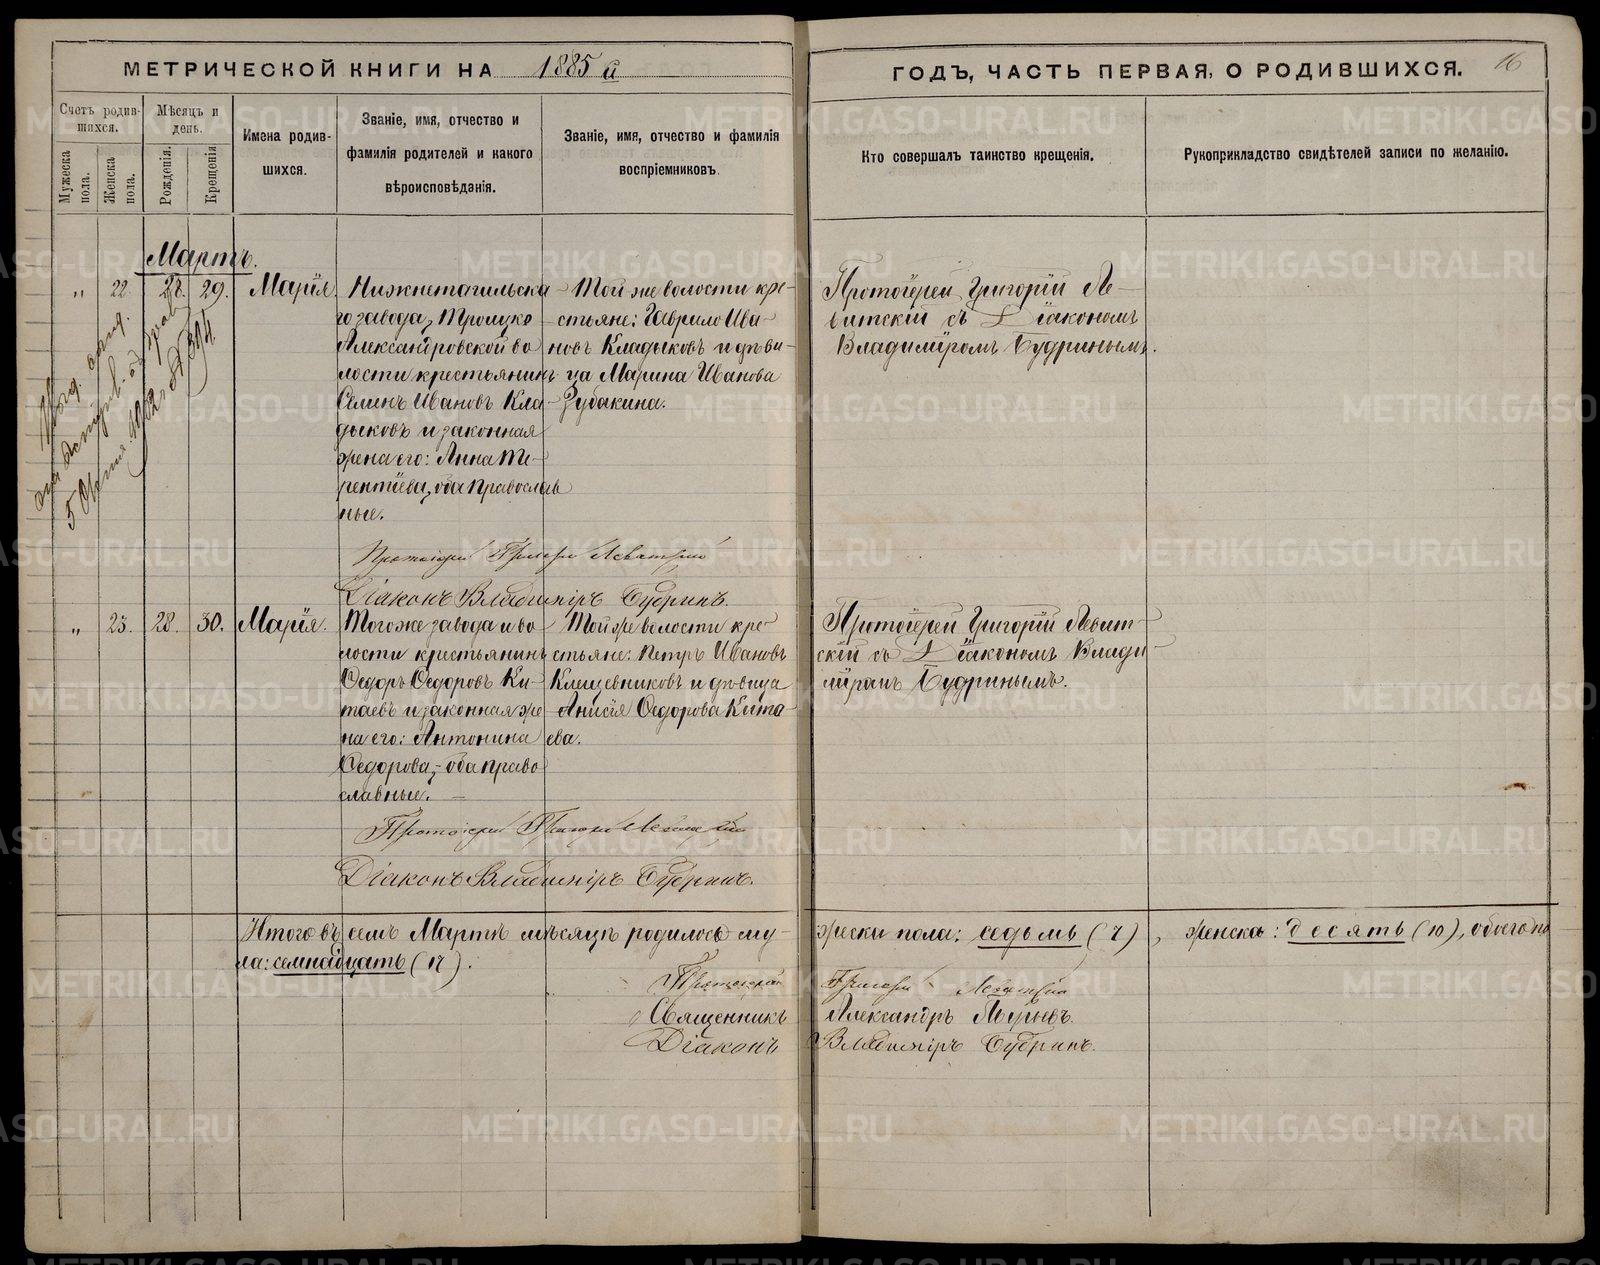 МЕТРИЧЕСКОЙ КНИГИ НА 1885й
ГОДЪ, ЧАСТЬ ПЕРВАЯ, О РОДИВШИХСЯ.
16
Счетъ родив-
шихся.
Мужеска
пола.
Женска
пола.
Мѣсяцъ и
день.
Рожденія.
Крещенія
Имена родив-
шихся.
Званіе, имя, отчество и
фамилія родителей и какого
вѣроисповѣданія.
Званіе, имя, отчество и фамилія
воспріемниковъ.
Кто совершалъ таинство крещенія.
Рукоприкладство свидѣтелей записи по желанію.
Мартъ.
„ 22. 28. 29. Марія.
Нижнетагильска
го завода, Троицко
Александровской во
лости крестьянинъ
Семенъ Ивановъ Кла-
дыковъ и законная
жена его: Анна Те-
рентіева, оба православ
ные.
Той же волости кре-
стьяне: Гаврило Ива-
новъ Кладыковъ и дѣви-
ца Марина Иванова
Зубакина.
Протоіерей Григорій Ле-
витскій съ Діакономъ
Владиміромъ Будринымъ.
5 1902 № 394
Протоіерей Григорій Левитскій
Діаконъ Владиміръ Будринъ.
„ 23. 28. 30. Марія.
Того же завода и во
лости крестьянинъ
Ѳедоръ Ѳедоровъ Ки-
таевъ и законная же
на его: Антонина
Ѳедорова, оба право
славные.
Той же волости кре-
стьяне: Петръ Ивановъ
Клещевниковъ и дѣвица
Анисія Ѳедорова Кита-
ева.
Протоіерей Григорій Левит-
скій съ Діакономъ Влади-
міромъ Будринымъ.
Протоіерей Григорій Левитскій
Діаконъ Владиміръ Будринъ.
Итого въ семъ Мартѣ мѣсяцѣ родилось му-жеска пола: седьмъ (7), женска: десять (10), обоего по
ла: семнадцать (17).
Протоіерей Григорій Левитскій
Священникъ Александръ
Діаконъ Владиміръ Будринъ.
METRIKI.GASO-URAL.RU